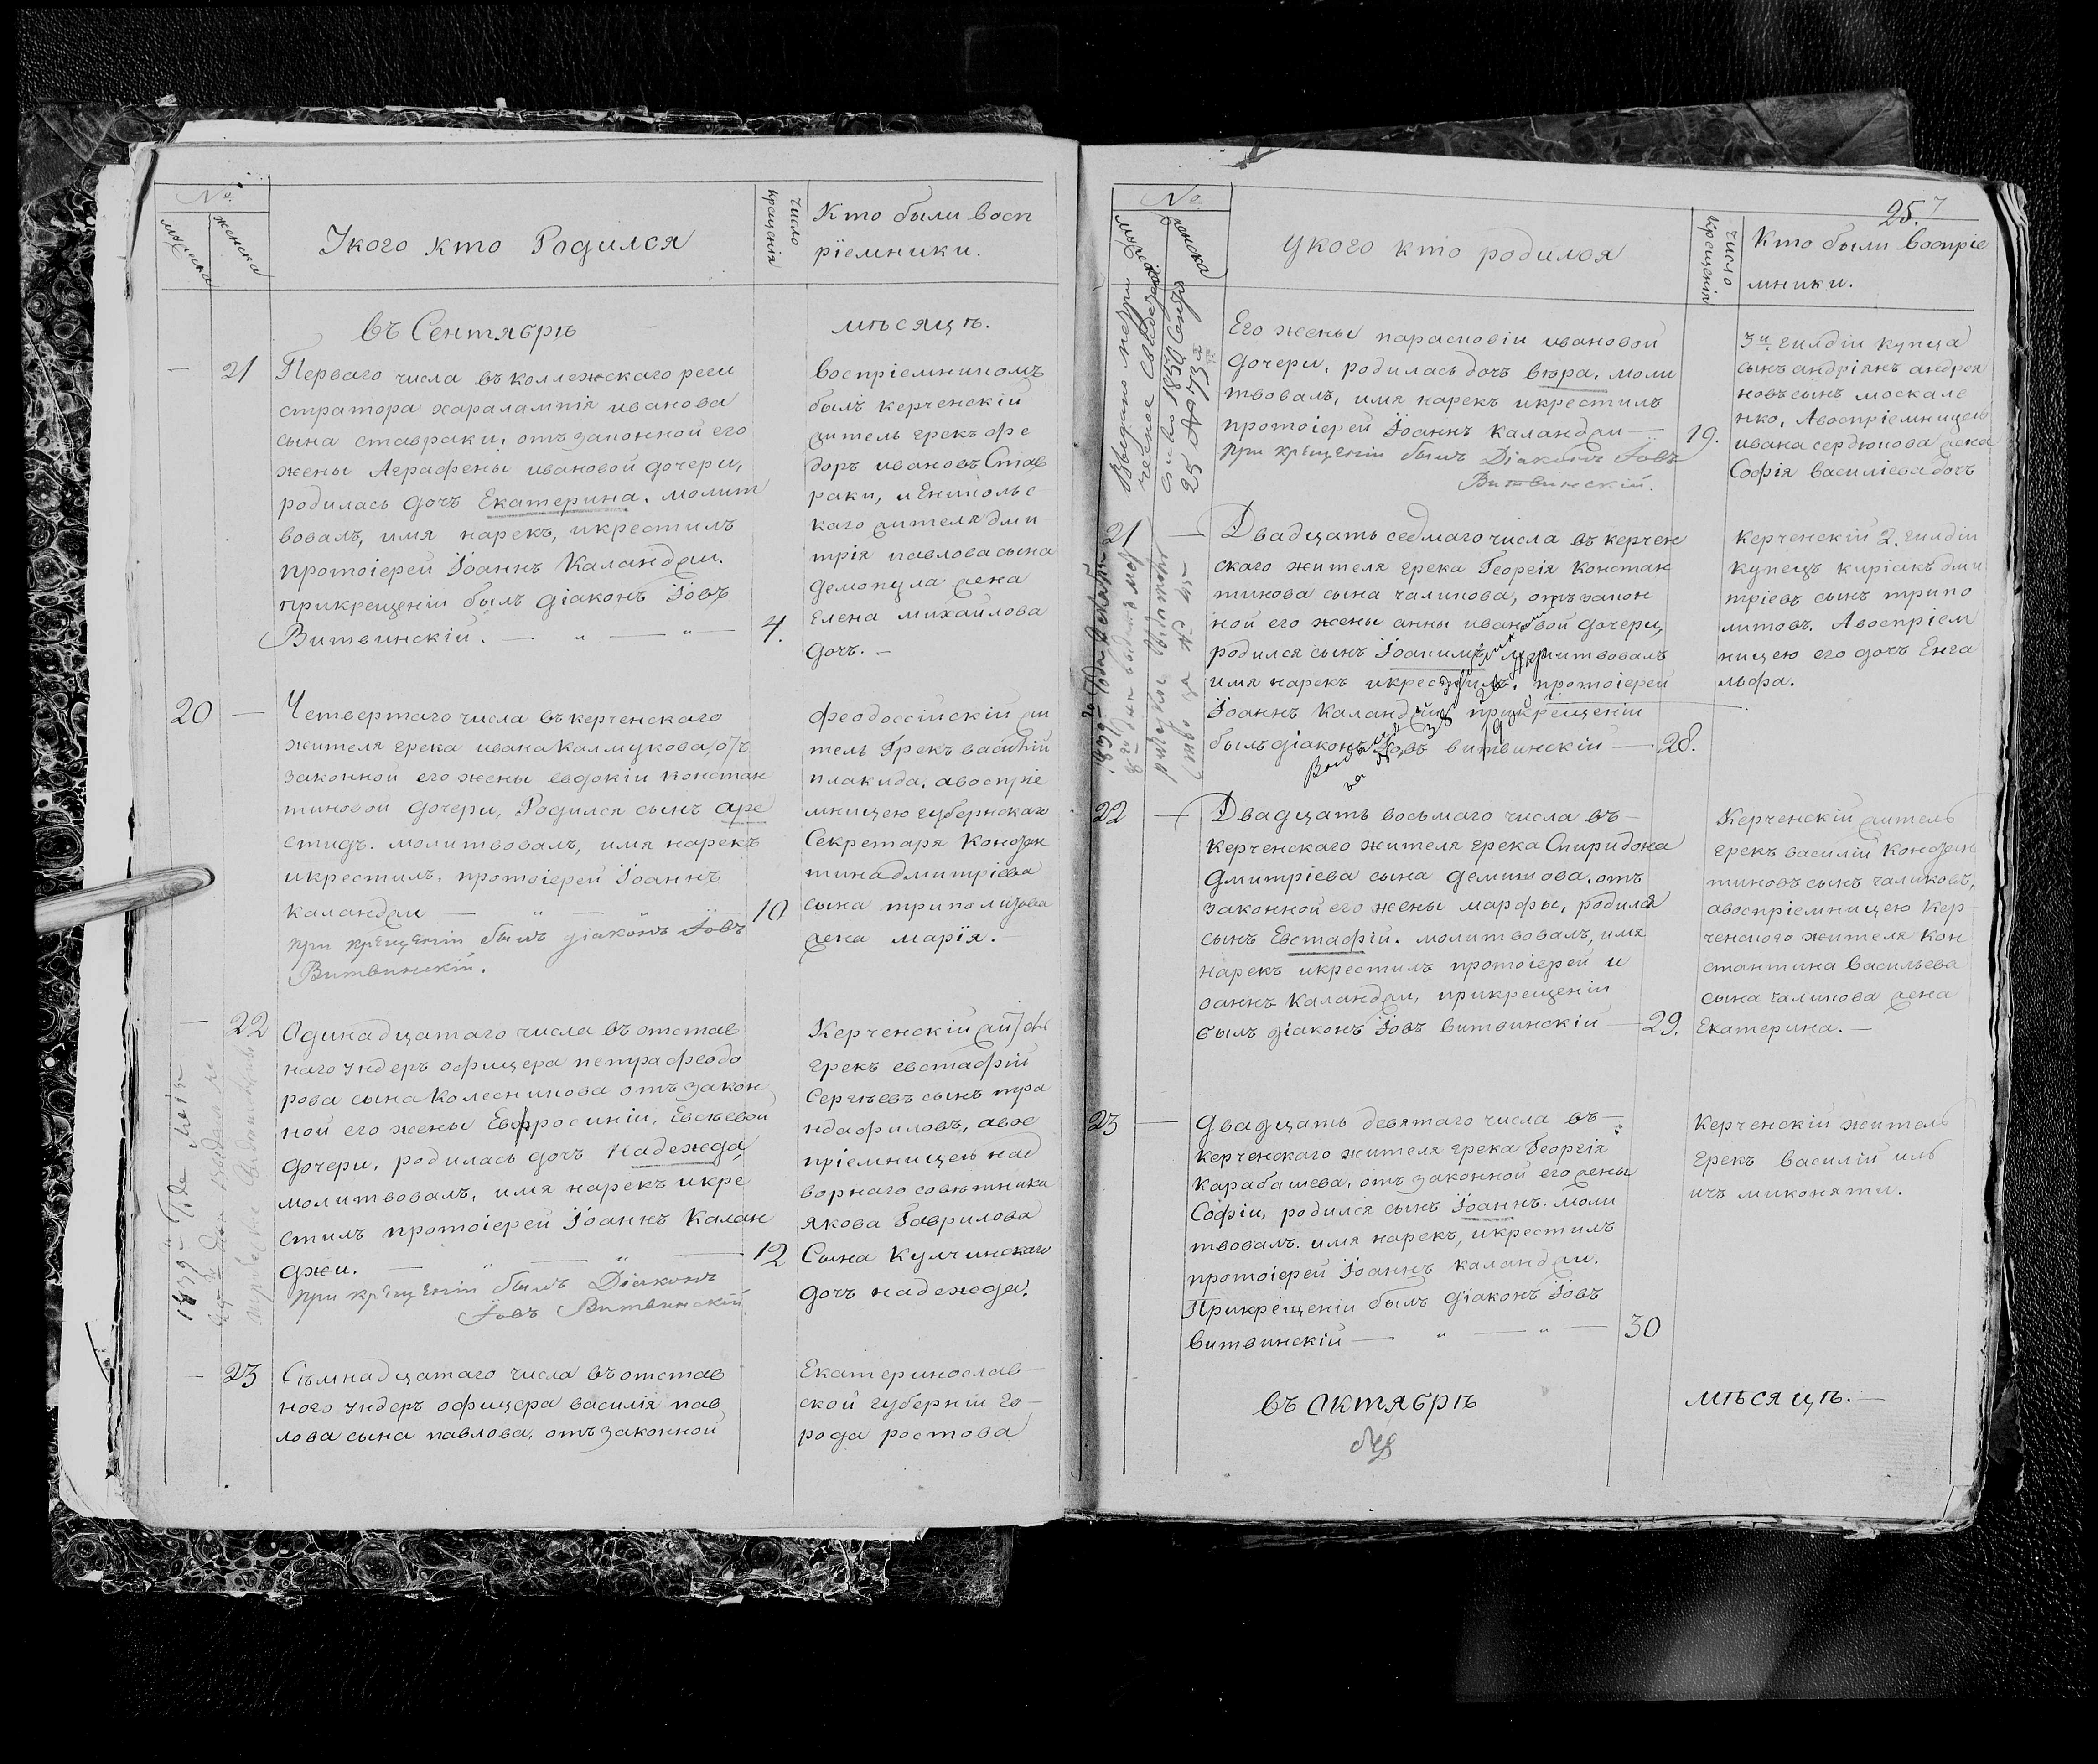 №
мужска
женска
Укого кто Родился
число
крещенія
Кто были восп
ріемники.
въ Сентябрѣ
мѣсяцѣ.
21
Перваго числа въ коллежскаго реги
стратора харалампія иванова
сына ставраки, отъ законной его
жены Аграфены ивановой дочери,
родилась дочъ Екатерина. молит
вовалъ, имя нарекъ, икрестилъ
протоіерей Іоаннъ Каланджи.
прикрещеніи былъ діаконъ Іовъ
Витвинскій. — " — " —
4.
воспріемникомъ
былъ керченскій
житель грекъ фе
доръ ивановъ Став
раки, и Еникольс
каго жителя дми
трія павлова сына
демопула жена
Елена михайлова
дочъ. —
20
Четвертаго числа въ керченскаго
жителя грека ивана калмукова, отъ
законной его жены евдокіи констан
тиновой дочери, Родился сынъ аре
стидъ. молитвовалъ, имя нарекъ
икрестилъ, протоіерей Іоаннъ
каланджи — " — " — "
10
при крещеніи былъ діаконъ Іовъ
Витвинскій.
феодоссійскій жи
тель Грекъ василій
плакида, авоспріе
мницею губернскаго
Секретаря Констан
тина дмитріева
сына триполитова
жена марія. —
22
Одинадцатаго числа въ отстав
наго ундеръ офицера петра феодо
рова сына Колесникова отъ закон
ной его жены Евфросиніи, Евсѣевой
дочери, родилась дочъ Надежда,
молитвовалъ, имя нарекъ икре
стилъ протоіерей Іоаннъ Калан
джи. — " — " —
12
при крещеніи былъ Діаконъ
Іовъ Витвинскій
Керченскій житель
грекъ евстафій
Сергѣевъ сынъ тра
ндафиловъ, авос
пріемницею над
ворнаго совѣтника
якова Гаврилова
Сына Кулчинскаго
дочъ надежда.
1839 Года
23
Сѣмнадцатаго числа въ отстав
ного ундеръ офицера василія пав
лова сына павлова, отъ законной
Екатеринослав
ской губерніи го
рода ростова
25.
№
женска
укого кто родился
число
крещенія
Кто были воспріе
мники.
Его жены парасковіи ивановой
дочери, родилась дочъ вѣра. моли
твовалъ, имя нарекъ икрестилъ
протоіерей Іоаннъ каланджи —
19.
при крещеніи былъ Діаконъ Іовъ
Витвинскій.
3й гилдіи купца
сынъ андріянъ андрея
новъ сынъ москале
нко, Авоспріемницею
ивана сердюкова жена
Софія василіева дочъ
21
Двадцать седмаго числа въ керчен
скаго жителя грека Георгія Констан
тинова сына чаликова, отъ закон
ной его жены анны ивановой дочери,
родился сынъ Іоакимъ, молитвовалъ
имя нарекъ икрестилъ, протоіерей
Іоаннъ Каланджи прикрещеніи
былъ діаконъ Іовъ витвинскій —
28.
керченскій 2. гилдіи
купецъ киріакъ дми
тріевъ сынъ трипо
литовъ. Авоспріем
ницею его дочъ Енга
льфа.
22
Двадцать восьмаго числа въ —
керченскаго жителя грека Спиридона
дмитріева сына демикова, отъ
законной его жены марфы, родился
сынъ Евстафій. молитвовалъ, имя
нарекъ икрестилъ протоіерей и
оаннъ каланджи, прикрещеніи
былъ діаконъ Іовъ витвинскій —
29.
Керченскій житель
грекъ василій Констан
тиновъ сынъ чаликовъ,
авоспріемницею Кер
ченского жителя Кон
стантина васильева
сына чаликова жена
Екатерина. —
23
двадцать девятаго числа въ —
керченскаго жителя грека Георгія
карабашева, отъ законной его жены
Софіи, родился сынъ Іоаннъ. моли
твовалъ. имя нарекъ, икрестилъ
протоіерей Іоаннъ каланджи.
Прикрещеніи былъ діаконъ Іовъ
витвинскій — " — " —
30
Керченскій житель
грекъ василій иль
ичъ миконяти.
въ октябрѣ
мѣсяцѣ. —